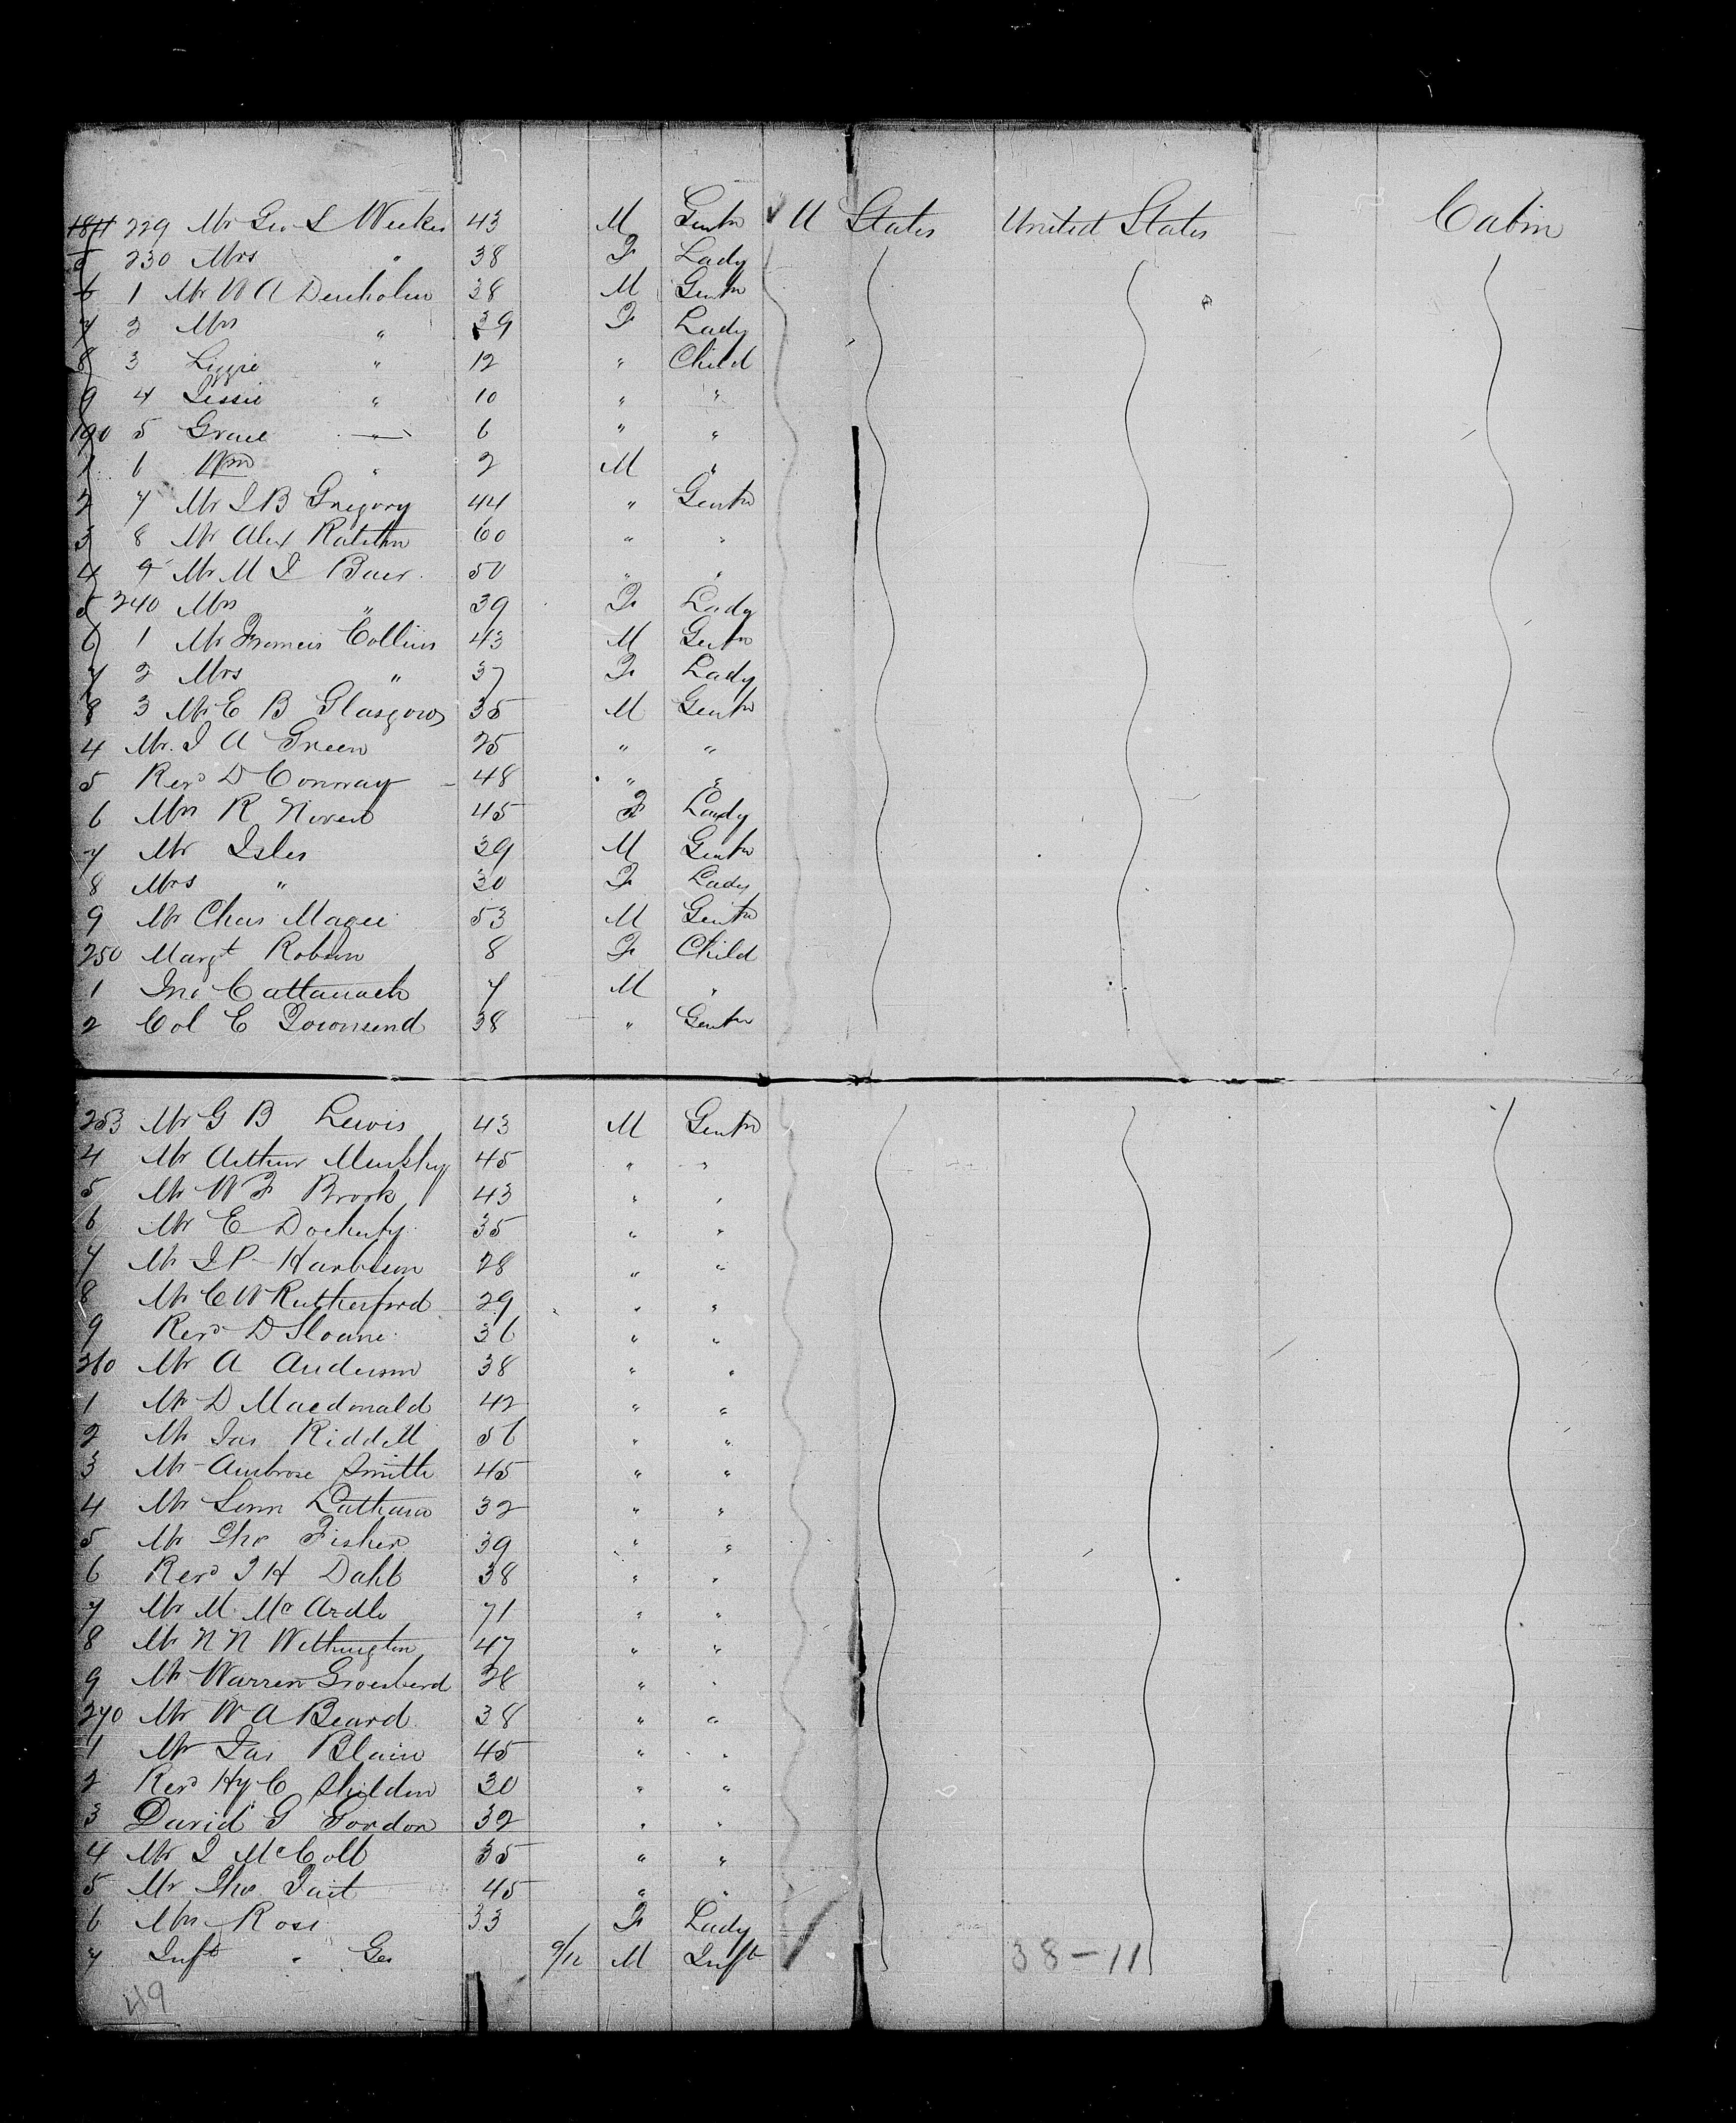 184 229 Mr Geo S Weekes 43 M Gentn U States United States Cabin
5 230 Mrs " 38 F Lady
6 1 Mr W A Denholm 38 M Gentn
7 2 Mrs " 39 F Lady
8 3 Lizzie " 12 " Child
9 4 Jessie " 10 " "
190 5 Grace " 6 " "
1 6 Wm " 2 M "
2 7 Mr J B Gregory 44 " Gentn
3 8 Mr Alex Ralston 60 " "
4 9 Mr M J Baer 50 " "
5 240 Mrs " 39 F Lady
6 1 Mr Francis Collins 43 M Gentn
7 2 Mrs " 37 F Lady
8 3 Mr E B Glasgow 35 M Gentn
4 Mr. J A Green 25 " "
5 Revd D Conway 48 " "
6 Mrs R Niven 45 F Lady
7 Mr Isles 39 M Gentn
8 Mrs " 30 F Lady
9 Mr Chas Magee 53 M Gentn
250 Margt Robson 8 F Child
1 Jno Cattanach 7 M "
2 Col E Townsend 38 " Gentn
253 Mr G B Lewis 43 M Gentn
4 Mr Arthur 45 " "
5 Mr W F Brook 43 " "
6 Mr E Docherty 35 " "
7 Mr J P Harbison 28 " "
8 Mr C W Rutherford 29 " "
9 Revd D Sloane 36 " "
260 Mr A Anderson 38 " "
1 Mr D Macdonald 42 " "
2 Mr Jas Riddell 56 " "
3 Mr Ambrose Smith 45 " "
4 Mr Latham 32 " "
5 Mr Tho Fisher 39 " "
6 Revd T H Dahl 38 " "
7 Mr M McArdle 71 " "
8 Mr N N Withington 47 " "
9 Mr Warren 28 " "
270 Mr W A Beard 38 " "
1 Mr Jas Blain 45 " "
2 Revd Hy C Sheldon 30 " "
3 David G Gordon 32 " "
4 Mr J McColl 35 " "
5 Mr Tho Tait 45 " "
6 Mrs Ross 33 F Lady
7 Inft " Geo 9/12 M Inft
38-11
49